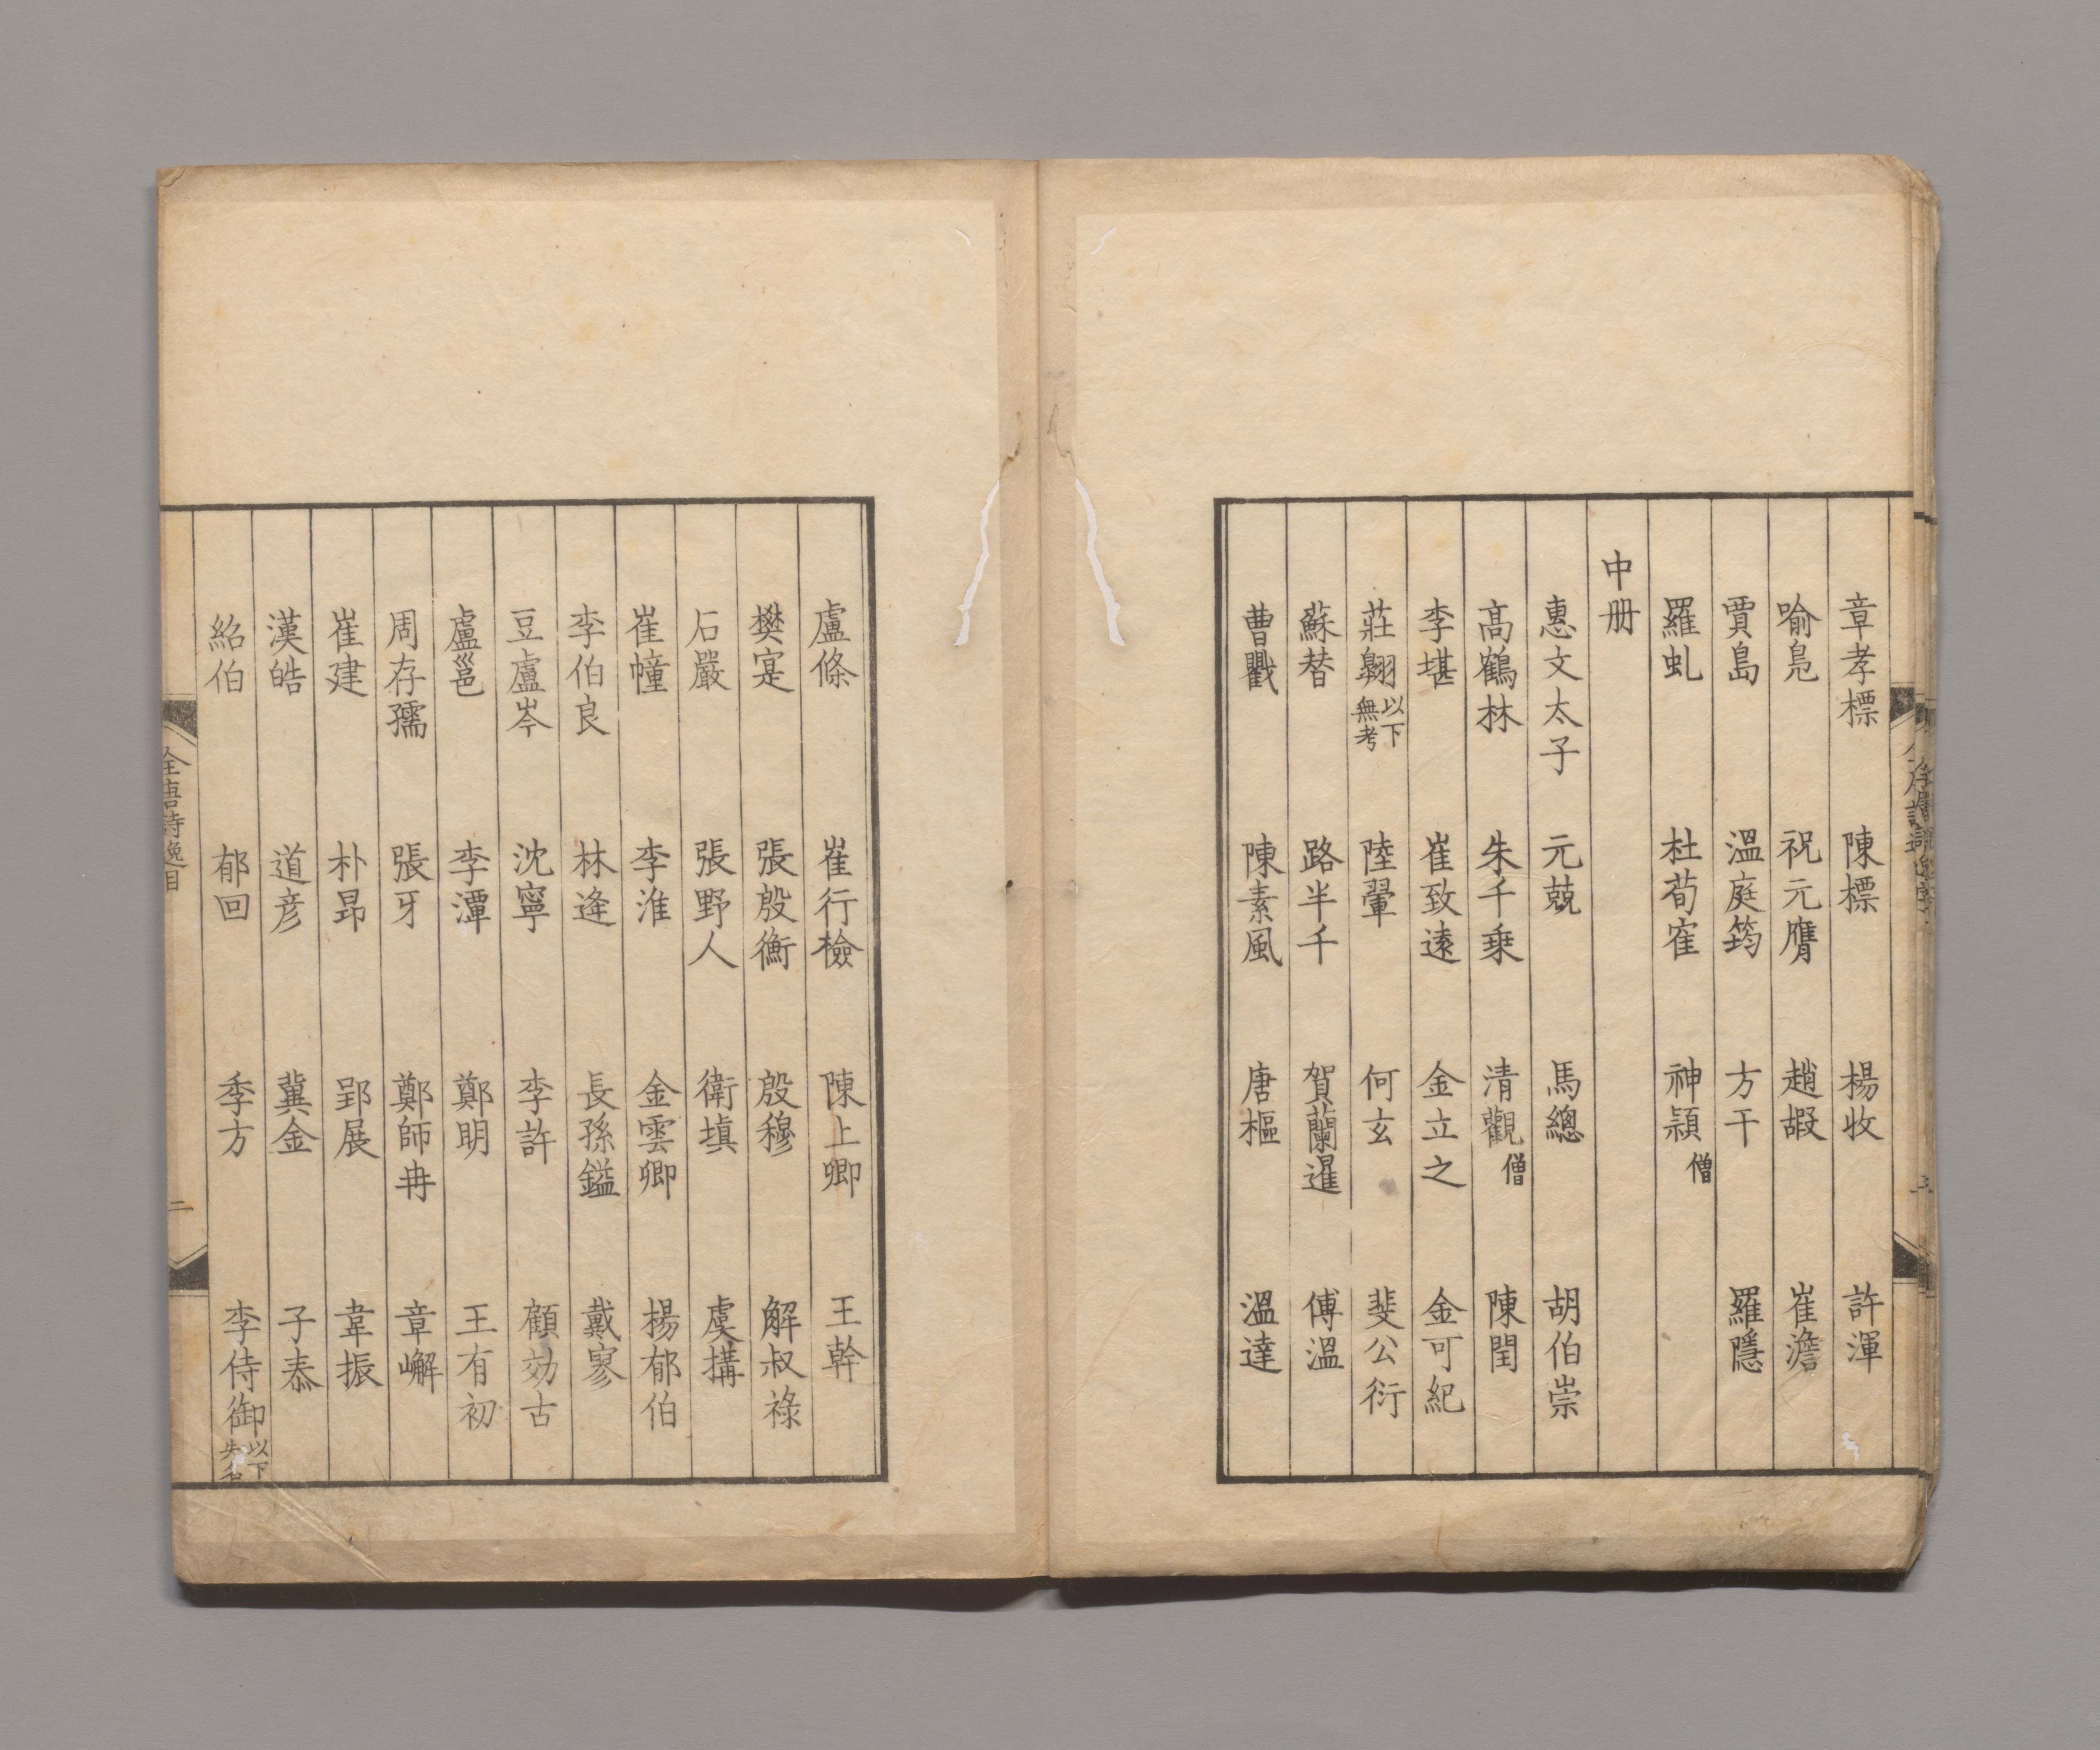 章孝標 陳標 楊收 許渾
喻鳧 祝元膺 趙嘏 崔澹
賈島 溫庭筠 方干 羅隱
羅虬 杜荀寉 神頴僧
中册
惠文太子 元兢 馬總 胡伯崇
高鶴林 朱千乗 清觀僧 陳閏
李堪 崔致遠 金立之 金可紀
莊翺以下無考 陸翬 何玄 斐公衍
蘇替 路半千 賀蘭暹 傅溫
曹戵 陳素風 唐樞 溫達
盧條 崔行檢 陳上卿 王幹
樊寔 張殷衡 殷穆 解叔祿
石嚴 張野人 衛塡 虞搆
崔幢 李淮 金雲卿 楊郁伯
李伯良 林逄 長孫鎰 戴寥
豆盧岑 沈寧 李許 顧効古
盧邕 李潭 鄭明 王有初
周存孺 張牙 鄭師冉 章嶰
崔建 朴昻 郢展 韋振
漢皓 道彦 冀金 子泰
紹伯 郁回 季方 李侍御以下失名
全唐詩逸目 二